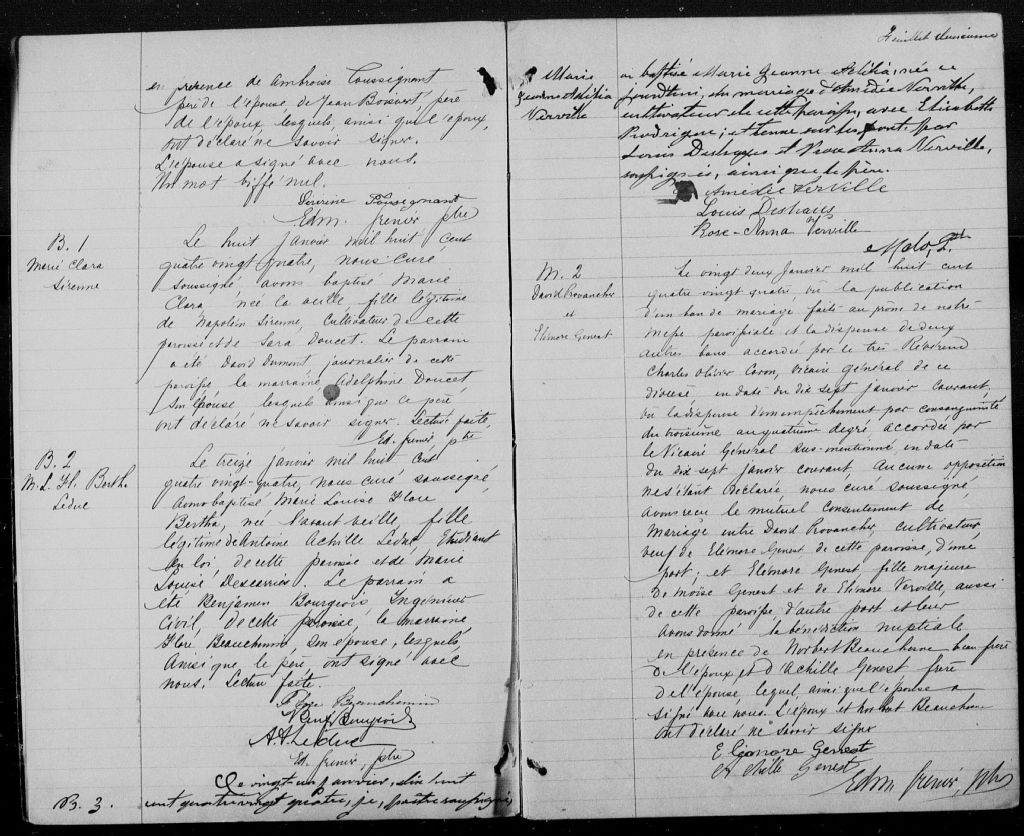 en présence de Ambroise Toussignant
père de l'épouse, de Jean Boisvert, père
de l'époux lesquels, ainsi que l'époux,
ont déclaré ne savoir signer.
L'épouse a signé avec nous.
Un mot biffé nul.
Séverine Tousignant
Edm. Grenier ptre
B. 1
Marie Clara
Sirenne
Le huit Janvier mil huit cent
quatre vingt quatre, nous curé
soussigné, avons baptisé Marie
Clara, née la veille, fille légitime
de Napoléin Sirenne, Cultivateur de cette
paroisse et de Sara Doucet. Le parrain
a été David Dumont journalier de cette
paroisse la marraine Adelphine Doucet
son épouse, lesquels ainsi que le père
ont déclaré ne savoir signer. Lecture faite,
Ed. Grenier ptre
B. 2
M. L. Fl. Berth.
Leduc
Le treize Janvier mil huit cent
quatre vingt-quatre, nous curé soussigné,
avons baptisé Marie Louise Flore
Bertha, née l'avant veille, fille
légitime de Antoine Achille Leduc, Etudiant
en loi, de cette paroisse et de Marie
Louise Descarries. Le parrain a
été Benjamin Bourgeois, Ingénieur
Civil, de cette paroisse, la marraine
Flore Beauchemin, son épouse, lesquels,
Ainsi que le père ont signé avec
nous. Lecture faite.
Flore Beauchemin
Benj Bourgeois
A. A. Leduc
Ed. Grenier, ptre
B. 3.
Le vingt un janvier, mil huit
cent quatre vingt quatre, je, prêtre soussigné,
Feuillet deuxième
Marie
Jeanne
Verville
ai baptisé Marie Jeanne née ce
du mariage d'Amédée Verville,
cultivateur de cette paroisse, avec Elisabeth
Rodrigue; et tenue sur les fonts par
Louis Deshayes et Rose Anna Verville,
soussignés, ainsi que le père.
Amédée Verville
Louis Deshaies
Rose-Anna Verville
Ptre
M. 2
David Provancher
et
Elénore Genest
Le vingt deux Janvier mil huit cent
quatre vingt quatre, vu la publication
d'un ban de mariage faite au prône de notre
messe paroissiale et la dispense de deux
autres bans accordée par le très Révérend
Charles Olivier Caron, vicaire général de ce
diocèse, en date du dix sept Janvier courant,
vu la dispense d'empêchement par consanguinité
du troisième au quatrième degré accordée par
le Vicaire Général sus-mentionné en date
du dix sept Janvier courant Aucune opposition
ne s'étant déclarée, nous curé soussigné,
avons reçu le mutuel consentement de
mariage entre David Provancher, cultivateur
veuf de Elénore Genest de cette paroisse, d'une
part; et Elénore Genest, fille majeure
de Moïse Genest et de Elénore Verville, aussi
de cette paroisse d'autre part et leur
avons donné la bénédiction nuptiale
en présence de Norbert Beauchesne beau frère
de l'époux et d'Achille Genest frère
de l'épouse lequel, ainsi que l'épouse a
signé avec nous. L'époux et Norbert Beauchesne
ont déclaré ne savoir signer
Eléonore Genest
Achille Genest
Edm Grenier, ptre